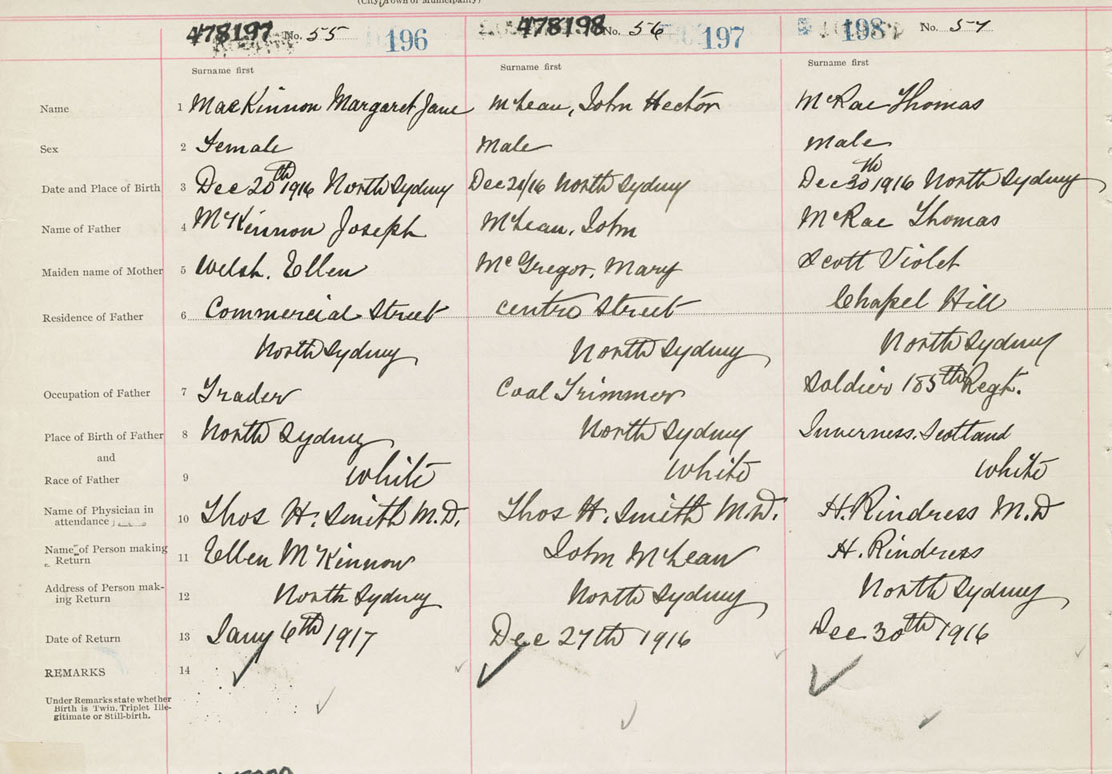 (City, Town or Municipality)
478197 No. 55 196
478198 No. 56 197
198 No. 57
Surname first Surname first Surname first
Name 1 MacKinnon Margaret Jane McLean, John Hector McRae Thomas
Sex 2 Female Male Male
Date and Place of Birth 3 Dec 20th 1916 North Sydney Dec 20/16 North Sydney Dec 30th 1916 North Sydney
Name of Father 4 McKinnon Joseph McLean, John McRae Thomas
Maiden name of Mother 5 Welsh, Ellen McGregor, Mary Scott Violet
Residence of Father 6 Commercial Street Centre Street Chapel Hill
North Sydney North Sydney North Sydney
Occupation of Father 7 Trader Coal Trimmer Soldier 185th Regt.
Place of Birth of Father 8 North Sydney North Sydney Inverness, Scotland
and
Race of Father 9 White White White
Name of Physician in
attendance 10 Thos H. Smith M.D. Thos H. Smith M.D. H. Rindress M.D
Name of Person making
Return 11 Ellen McKinnon John McLean H. Rindress
Address of Person mak-
ing Return 12 North Sydney North Sydney North Sydney
Date of Return 13 Jany 6th 1917 Dec 27th 1916 Dec 30th 1916
REMARKS 14
Under Remarks state whether
Birth is Twin, Triplet Ille-
gitimate or Still-birth.